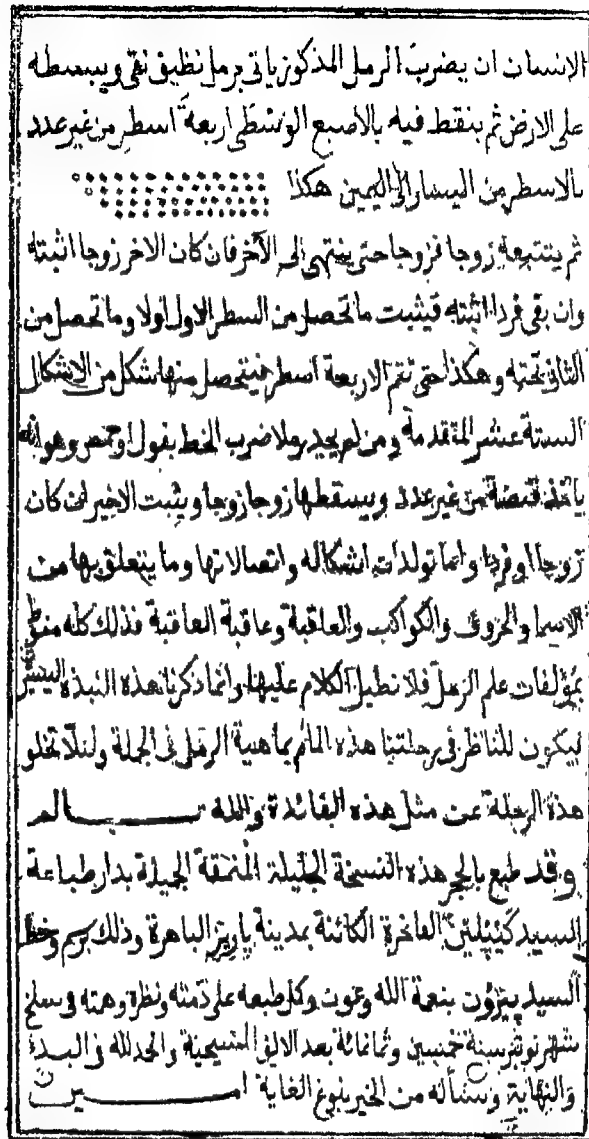 الانسان ان يضرب الرمل المذكور ياتى برمل نظيف نقى ويبسطه
على الارض ثم ينقط فيه بالاصبع الوسْطَى اربعة اسطر من غير عدد
بالاسطر من اليسار الى اليمين هكذا
ثم يتتبعه زوجا فزوجا حتى ينتهى الى الآخر فان كان الاخر زوجا اثبته
وان بقى فردا اثبته فيثبت ما تحصل من السطر الاول اولا وما تحصل من
الثانى تحته وهكذا حتى تتم الاربعة اسطر فيتحصل منها شكل من الاشكال
الستة عشر المتقدمة ومن لم يجد رملا ضرب الخط بفول او حمص وهو انه
ياخذ قبضة من غير عدد ويسقطها زوجا زوجا ويثبت الاخير ان كان
زوجا او فردا واما تولدات اشكاله واتصالاتها وما يتعلق بها من
الاسما والحروف والكواكب والعاقبة وعاقبة العاقبة فذلك كله منوط
بمؤلفات علم الرمل فلا نطيل الكلام عليها وانما ذكرنا هذه النبذة اليسيرة
ليكون للناظر فى رحلتنا هذه المام بماهية الرمل فى الجملة ولئلا تخلو
هذه الرحلة عن مثل هذه الفائدة والله
وقد طبع بالحجر هذه النسخة الجليلة المنمقة الجميلة بدار طباعة
السيد كَپّيلين الفاخرة الكائنة بمدينة پاريز الباهرة وذلك برسم وخط
السيد پيرُون بنعمة الله وعون وكمل طبعه على ذمته ونظره وهمته فى سلخ
شهر نونبر سنة خمسين وثمانمائة بعد الالف المسيحية والحمد لله فى البدء
والنهاية ونسأله من الخير بلوغ الغاية امين